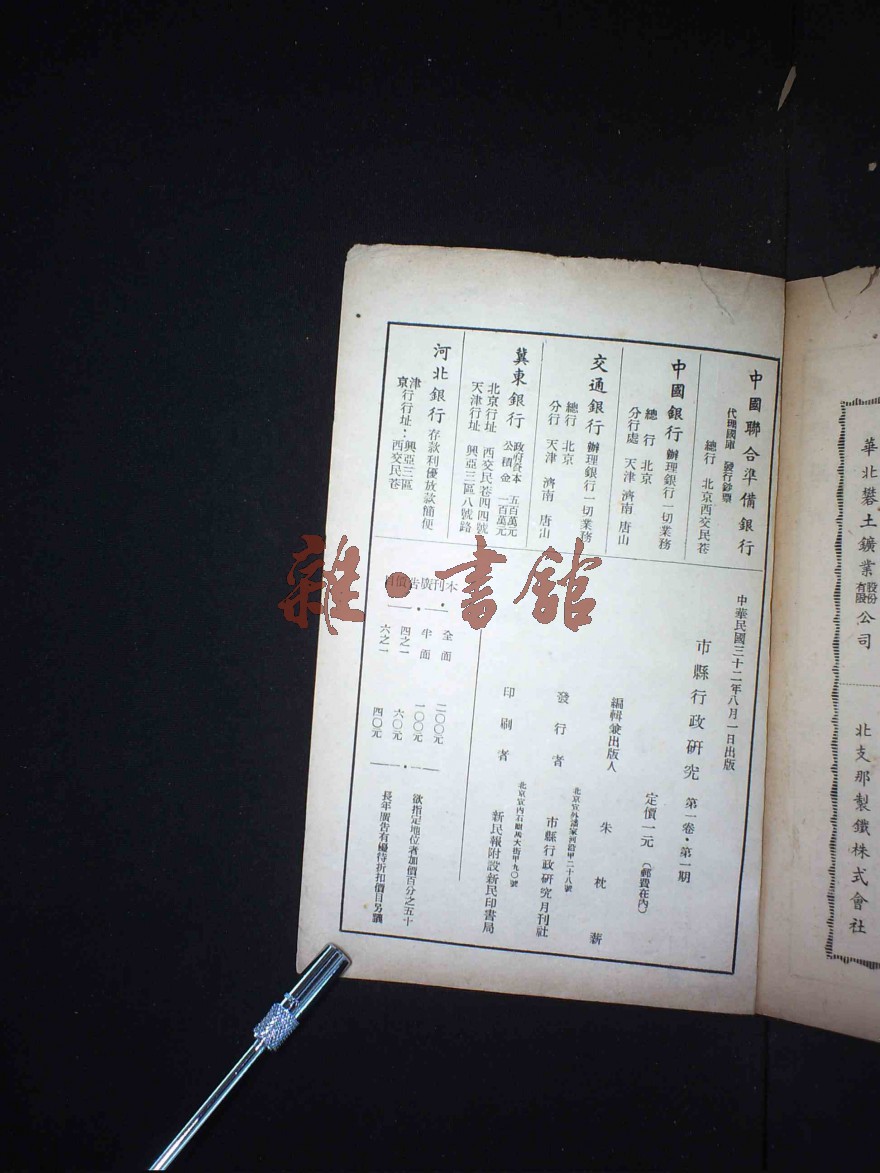 中國聯合準備銀行
代理國庫 發行鈔票
總行 北京西交民巷
中國銀行 辦理銀行一切業務
總行 北京
分行處 天津 濟南 唐山
交通銀行 辦理銀行一切業務
總行 北京
分行 天津 濟南 唐山
冀東銀行 政府資本 五百萬元
公積金 一百萬元
北京行址 西交民巷四四號
天津行址 興亞三區八號路
河北銀行 存款利優放款簡便
津行行址：興亞三區
京行行址：西交民巷
中華民國三十二年八月一日出版
市縣行政研究 第一卷·第一期
定價一元（郵費在內）
編輯兼出版人 朱枕薪
北京宣外潘家河沿甲二十八號
發行者 市縣行政研究月刊社
北京宣內石駙馬大街甲九〇號
印刷者 新民報附設新民印書局
本刊廣告價目
全面 二〇〇元
半面 一〇〇元
四之一 六〇元
六之一 四〇元
欲指定地位者加價百分之五十
長年廣告有優待折扣價目另議
華北礬土鑛業股份有限公司
北支那製鐵株式會社
雜·書館